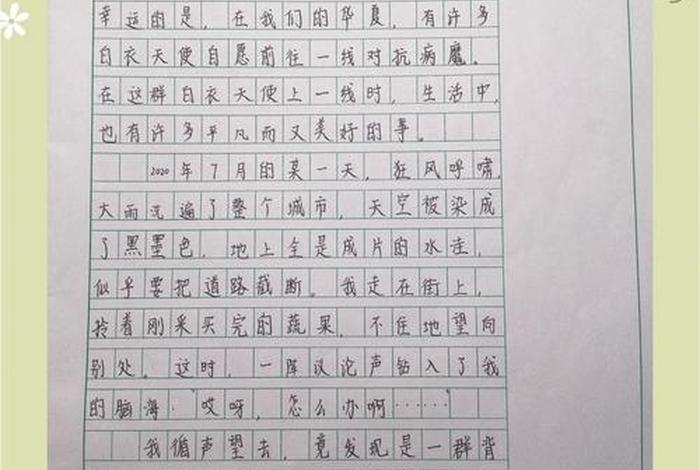 幸运的是，在我们的华夏，有许多
白衣天使自愿前往一线对抗病魔。
在这群白衣天使上一线时，生活中，
也有许多平凡而又美好的事。
2020年7月的某一天，狂风呼啸，
大雨沉遍了整个城市，天空被染成
了黑墨色，地上全是成片的水洼，
似乎要把道路截断。我走在街上，
拎着刚采买完的蔬果，不住地望向
别处。这时，一阵议论声钻入了我
的脑海：哎呀，怎么办啊……
我循声望去，竟发现是一群背